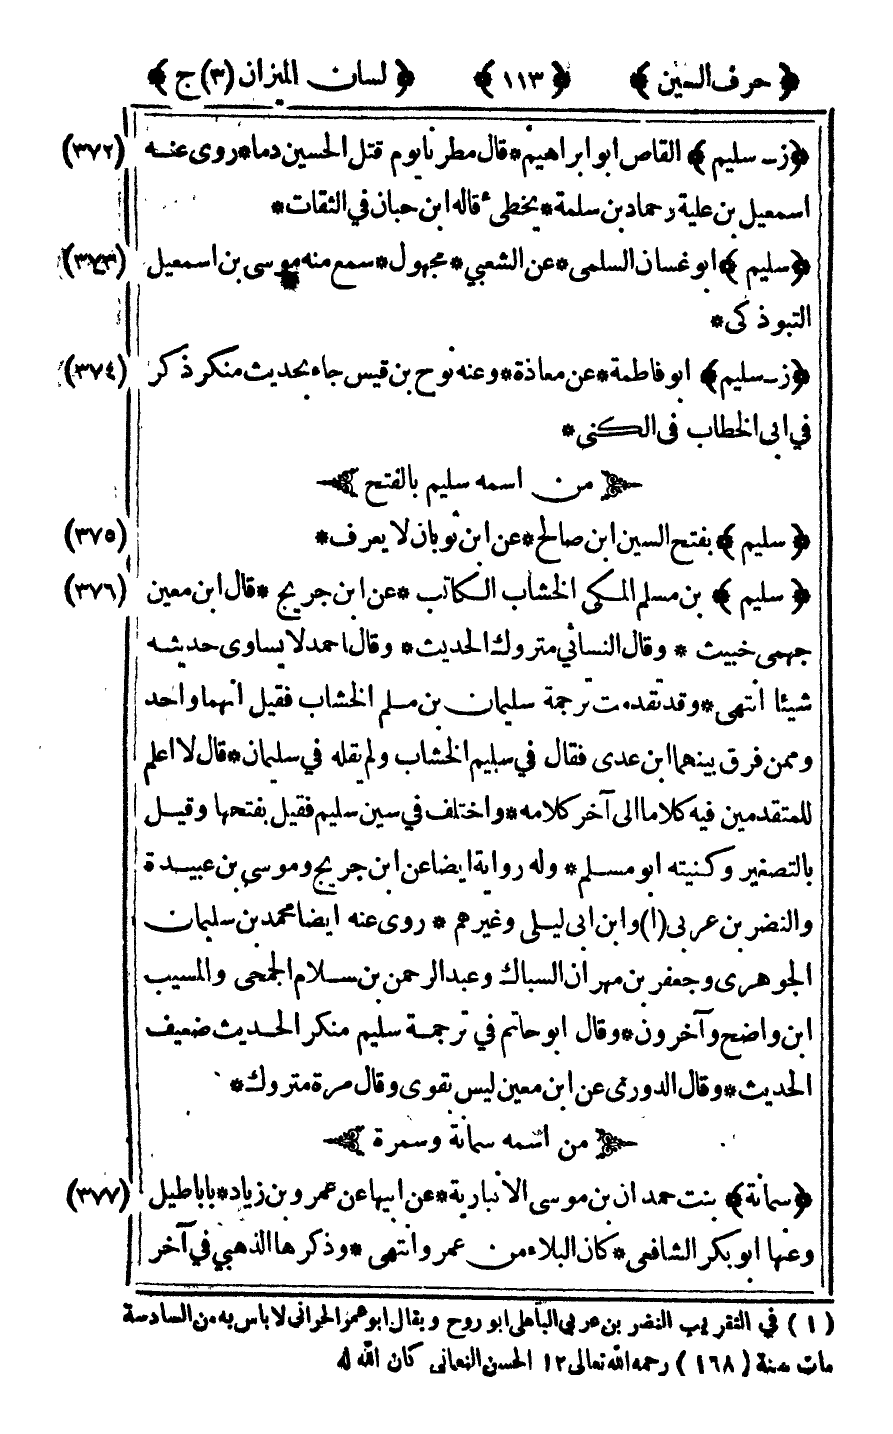 ﴿ حرف السين ﴾ ﴿ ١١٣ ﴾ ﴿ لسان الميزان (٣) ج ﴾
﴿ ز ـ سليم ﴾ القاص ابو ابراهيم * قال مطرنا يوم قتل الحسين دما * روى عنه (٣٧٢)
اسمعيل بن علية رحماد بن سلمة * يخطىء قاله ابن حبان في الثقات *
﴿ سليم ﴾ ابو غسان السلمى * عن الشعبي * مجهول * سمع منه موسى بن اسمعيل (٣٧٣)
التبوذكى *
﴿ ز ـ سليم ﴾ ابو فاطمة * عن معاذة * وعنه نوح بن قيس جاء بحديث منكر ذكر (٣٧٤)
في ابى الخطاب فى الكنى *
من اسمه سليم بالفتح
﴿ سليم ﴾ بفتح السين ابن صالح * عن ابن ثوبان لا يعرف * (٣٧٥)
﴿ سليم ﴾ بن مسلم المكى الخشاب الكاتب * عن ابن جريج * قال ابن معين (٣٧٦)
جهمى خبيث * وقال النسائي متروك الحديث * وقال احمد لا يساوى حديثه
شيئا انتهى * وقد تقدمت ترجمة سليمان بن مسلم الخشاب فقيل انهما واحد
وممن فرق بينهما ابن عدى فقال في سليم الخشاب ولم يقله في سليمان * قال لا اعلم
للمتقدمين فيه كلاما الى آخر كلامه * واختلف في سين سليم فقيل بفتحها وقيل
بالتصغير وكنيته ابو مسلم * وله رواية ايضا عن ابن جريج وموسى بن عبيدة
والنضر بن عربى (١) وابن ابى ليلى وغيرهم * روى عنه ايضا محمد بن سليمان
الجوهرى وجعفر بن مهران السباك وعبد الرحمن بن سلام الجمحى والمسيب
ابن واضح وآخرون * وقال ابو حاتم في ترجمة سليم منكر الحديث ضعيف
الحديث * وقال الدورى عن ابن معين ليس بقوى وقال مرة متروك *
من اسمه سمانة وسمرة
﴿ سمانة ﴾ بنت حمدان بن موسى الانبارية * عن ابيها عن عمرو بن زياد * باباطيل (٣٧٧)
وعنها ابو بكر الشافعى * كان البلاء من عمرو انتهى * وذكرها الذهبي في آخر
(١) في التقريب النضر بن عربى الباهلى ابو روح ويقال ابو عمر الحرانى لا باس به من السادسة
مات سنة (١٦٨) رحمه الله تعالى ١٢ الحسن النعمانى كان الله له